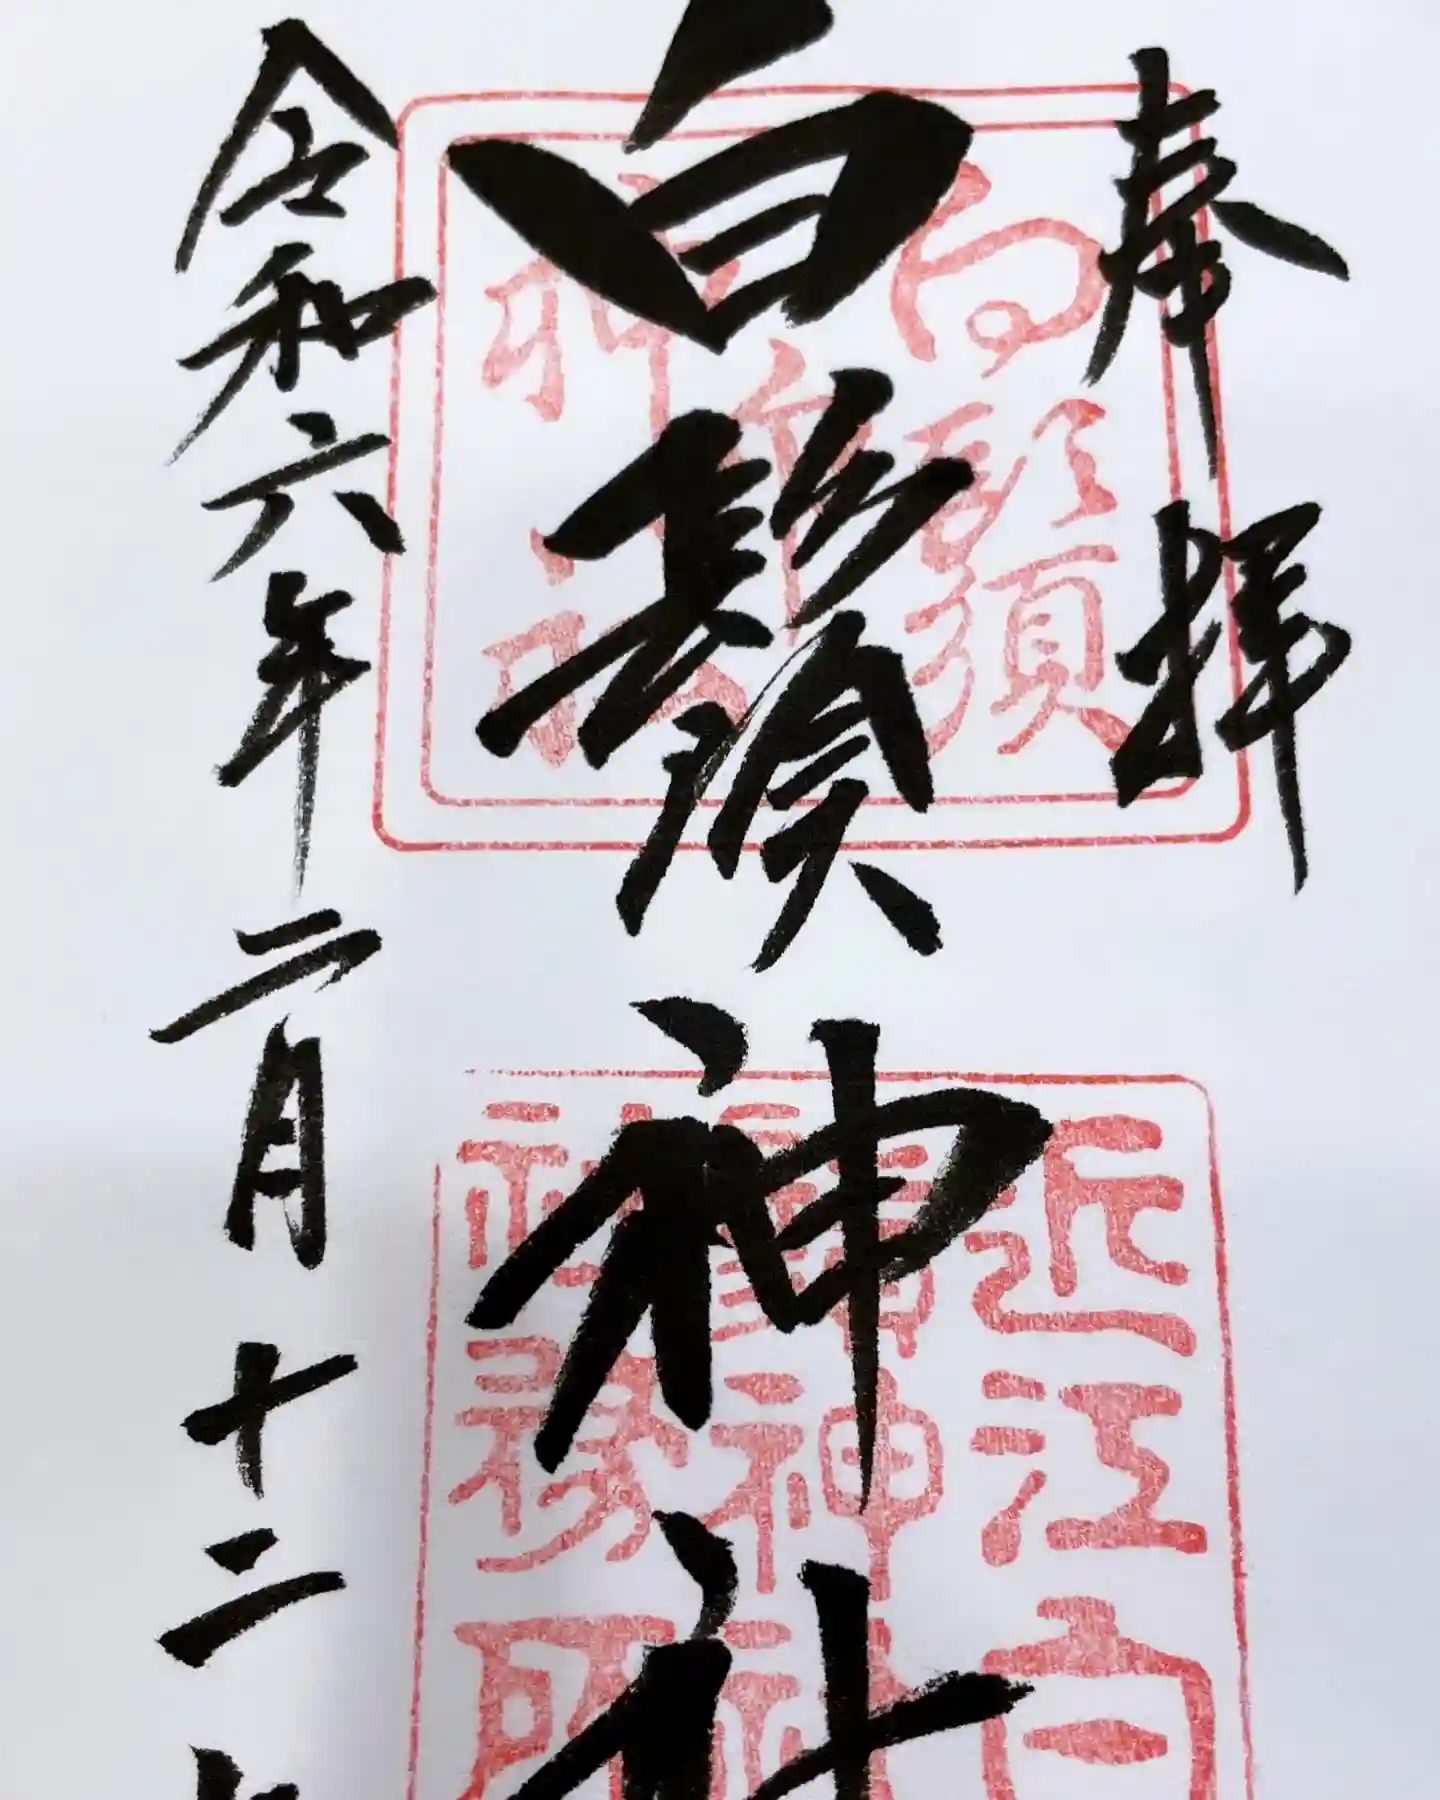 奉拝
白鬚神社
令和六年二月十二
白鬚
神社
近江白
鬚神社
社務所